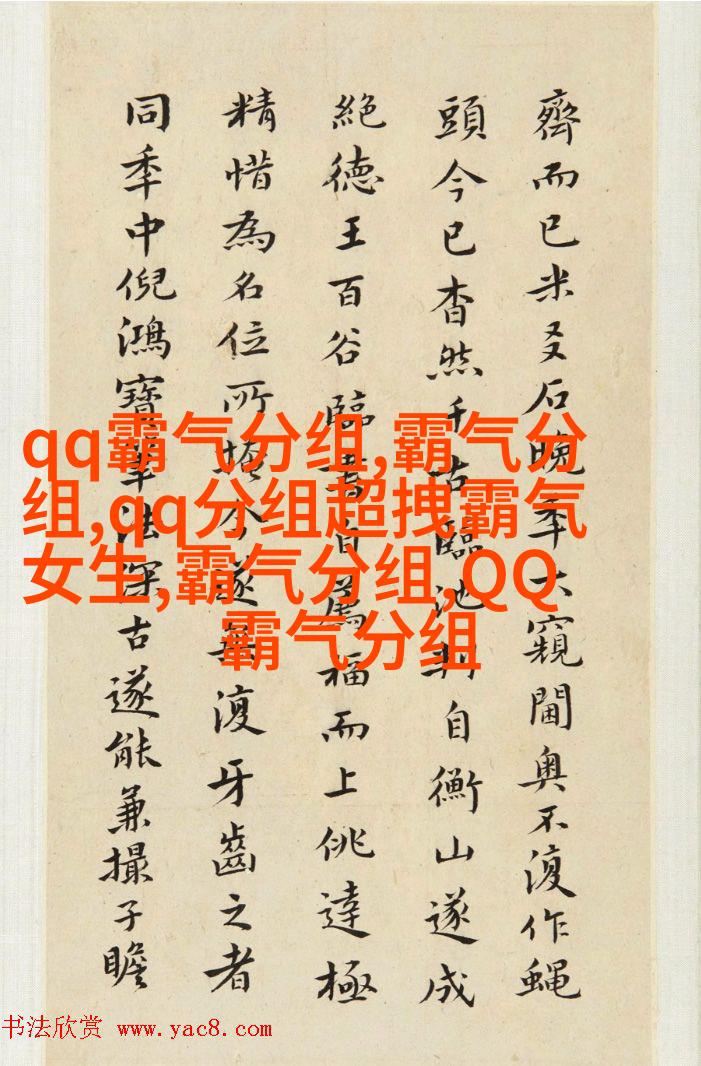 齊而已米友石晚年大窺閫奧不復作蝇
頭今已杳然千古臨池自衡山遂成
絕德王百谷臨書百萬福而上佻達極
精惜為名位所掩今遂無復牙齒之者
同年中倪鴻寶筆法深古遂能兼撮子瞻
qq霸气分组,霸气分
组,qq分组超拽霸气
女生,霸气分组,QQ
霸气分组
书法欣赏 www.yac8.com